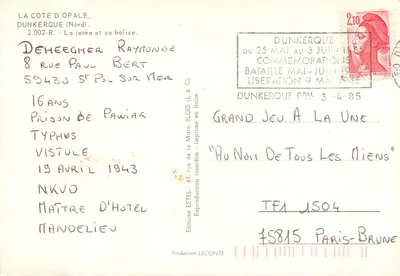 LA COTE D'OPALE,
DUNKERQUE (Nord).
2.002-R. - La jetée et sa balise.
DEHEEGHER RAYMONDE
8 RUE PAUL BERT
59430 ST POL SUR MER
16 ANS
PRISON DE PAWIAK
TYPHUS
VISTULE
19 AVRIL 1943
NKVD
MAÎTRE D'HOTEL
MANDELIEU
Editions ESTEL - 63, rue de la Mare, BLOIS (L & C)
Reproduction interdite - Imprimé en Italie
Production LECONTE
DUNKERQUE
DU 25 MAI AU 3 JUIN
COMMEMORATION
BATAILLE MAI-JUIN
LIBERATION 9 MAI
DUNKERQUE PPAL 3-4-85
2,10
GRAND JEU A LA UNE
"AU NOM DE TOUS LES MIENS"
TF1 1504
75815 PARIS-BRUNE